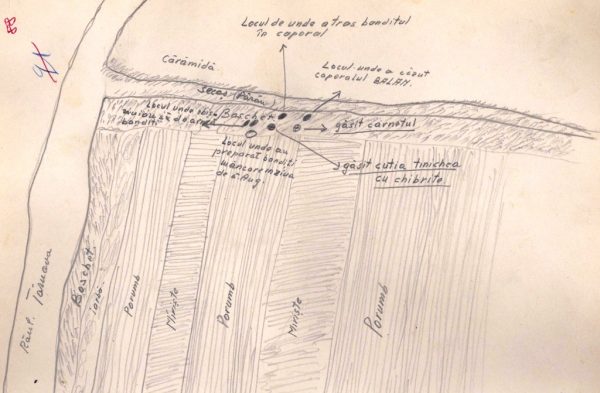 Locul de unde a tras banditul
în caporal
Cărămidă
Locul unde a căzut
caporalul BALAN.
Secaș (Pârău)
Boschet
Locul unde
bandiți
găsit carnetul
Locul unde au
preparat bandiți
mâncare în ziua
de 6 Aug
găsit cutia tinichea
cu chibrite
Râul Târnava
Boschet
iarbă
Porumb
Miriște
Porumb
Miriște
Porumb